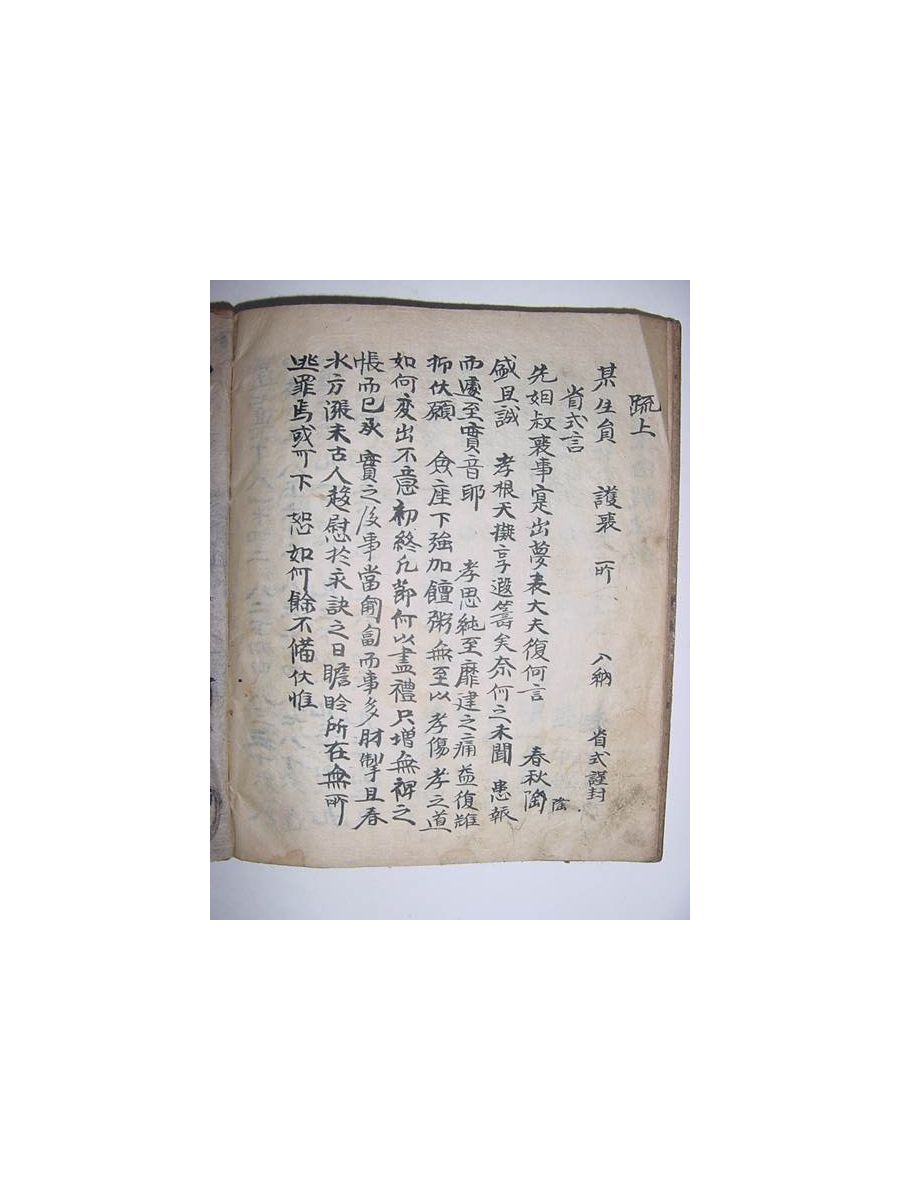 疏上
某生員　護喪　一所　入納　省式謹封
省式言
先妣叔喪事寔出夢表大夫復何言　春秋隃
陰
盛且誠　孝根天擬享遐籌矣奈何之未聞　患報
而遽至實音耶　孝思純至靡建之痛益復難
抑伏願　僉座下強加饘粥無至以　孝傷孝之道
如何变出不意初終凡節何以盡禮只增無裨之
帳而已承　實之後事當匍匐而事多肘掣且春
水方漲未古人趍慰於永訣之日瞻聆所在無所
逃罪焉或可下　恕如何餘不備伏惟